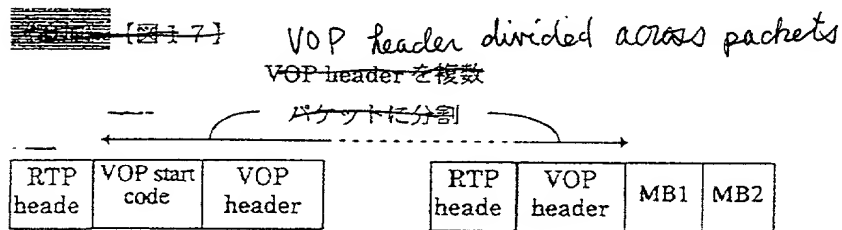 【図17】 VOP header divided across packets
VOP header を複数
パケットに分割
RTP heade VOP start code VOP header RTP heade VOP header MB1 MB2